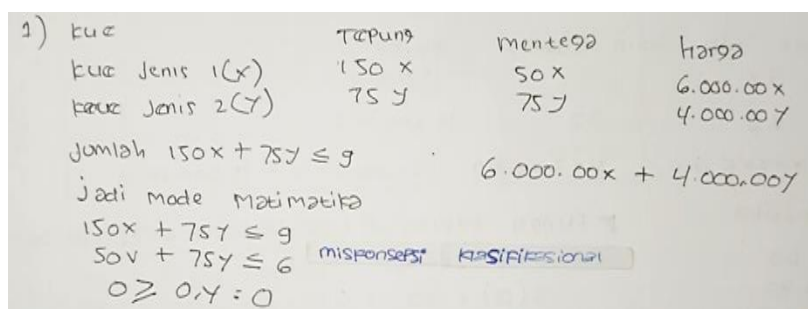 1) kue Tepung mentega harga
kue Jenis 1(x) 150 x 50 x 6.000.00 x
kaue Jenis 2(y) 75 y 75 y 4.000.00 y
Jumlah 150x + 75y ≤ 9 6.000.00x + 4.000.00y
jadi mode matimatika
150x + 75y ≤ 9
50v + 75y ≤ 6 misponsepsi klasifikasional
0 ≥ 0,y = 0